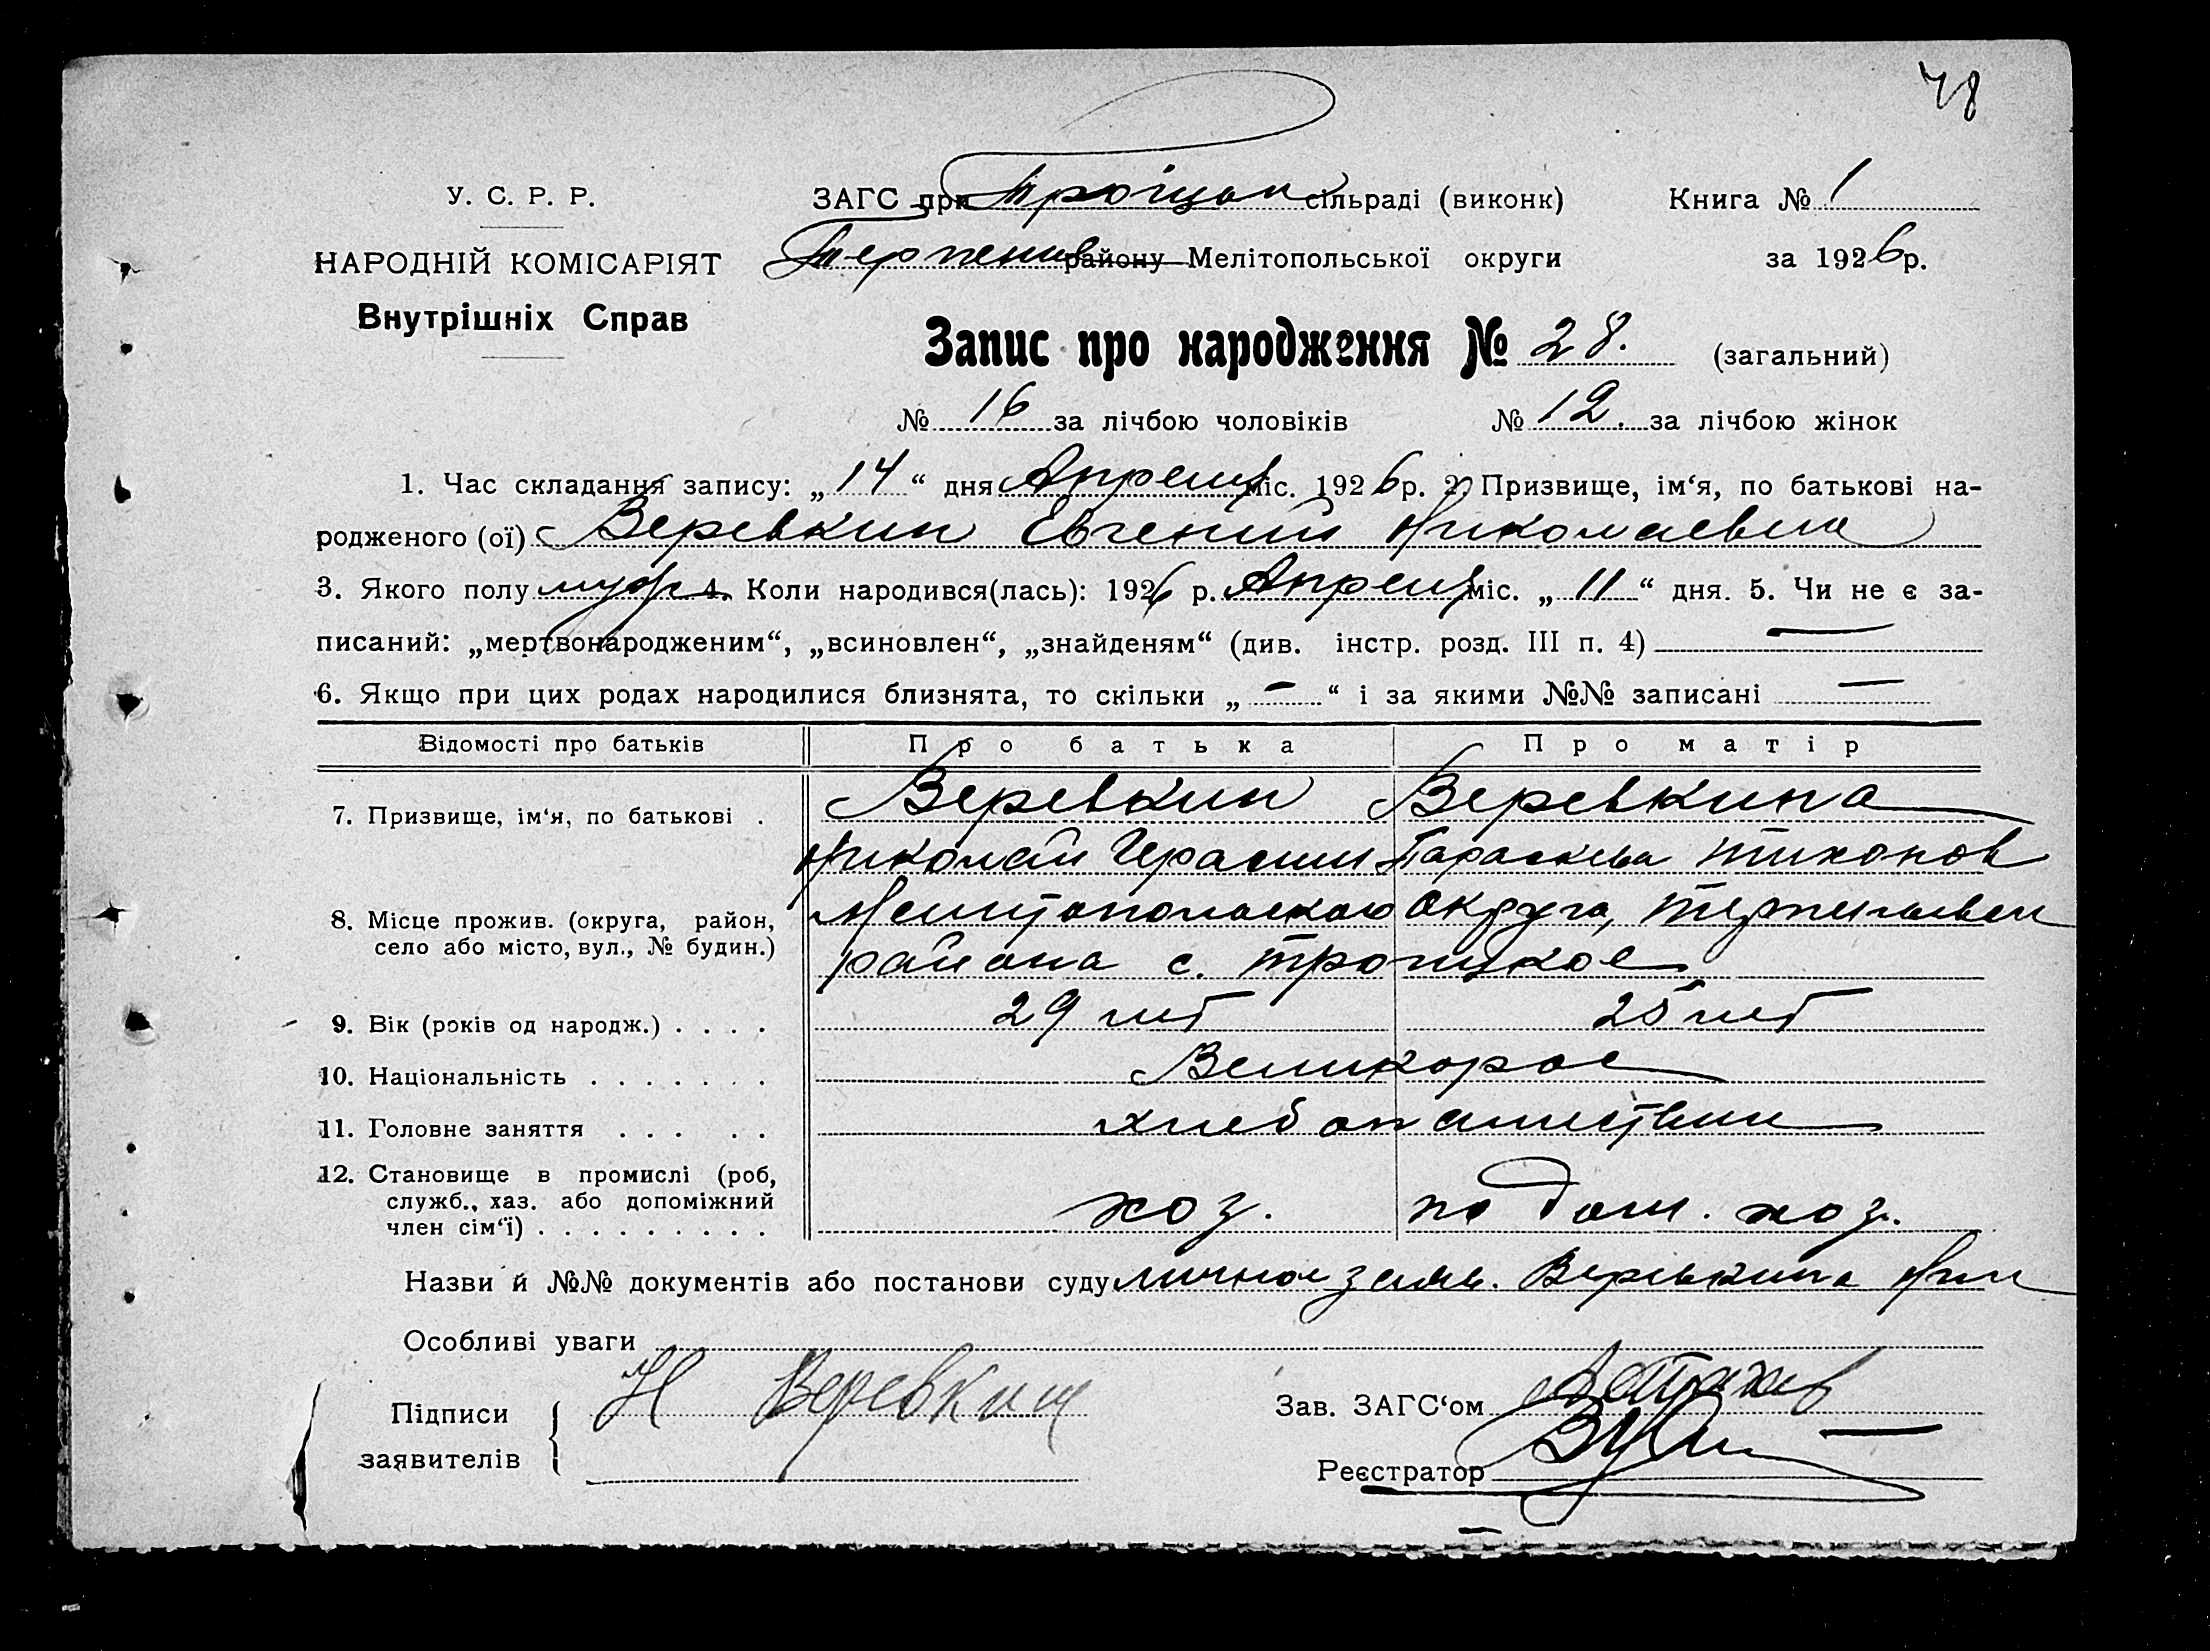 48
У. С. Р. Р.
НАРОДНІЙ КОМІСАРІЯТ
Внутрішніх Справ
ЗАГС при Троїцьк сільраді (виконк) Книга № 1
Терпенив району Мелітопольської округи за 1926 р.
Запис про народження № 28. (загальний)
№ 16 за лічбою чоловіків № 12. за лічбою жінок
1. Час складання запису: „14“ дня Апреля міс. 1926 р. 2. Призвище, ім‘я, по батькові на-
родженого (ої) Веревкин Евгений Николаевич
3. Якого полу муж 4. Коли народився(лась): 1926 р. Апреля міс. „11“ дня. 5. Чи не є за-
писаний: „мертвонародженим“, „всиновлен“, „знайденям“ (див. інстр. розд. III п. 4) —
6. Якщо при цих родах народилися близнята, то скільки „—“ і за якими №№ записані —
Відомості про батьків Про батька Про матір
7. Призвище, ім‘я, по батькові . Веревкин Веревкина
Николай Герасим Параскева Тихонов
8. Місце прожив. (округа, район,
село або місто, вул., № будин.)
Мелитопольского округа,
района с. Троицкое
9. Вік (років од народж.) . . . . 29 лет 25 лет
10. Національність . . . . . . . Великорос
11. Головне заняття . . . . . хлебопашество
12. Становище в промислі (роб,
служб., хаз. або допоміжний
член сім‘ї) . . . . . . . . . хоз. по дом. хоз.
Назви й №№ документів або постанови суду личное заяв. Веревкина Ник
Особливі уваги
Підписи
заявителів
Н Веревкин
Зав. ЗАГС‘ом
Реєстратор